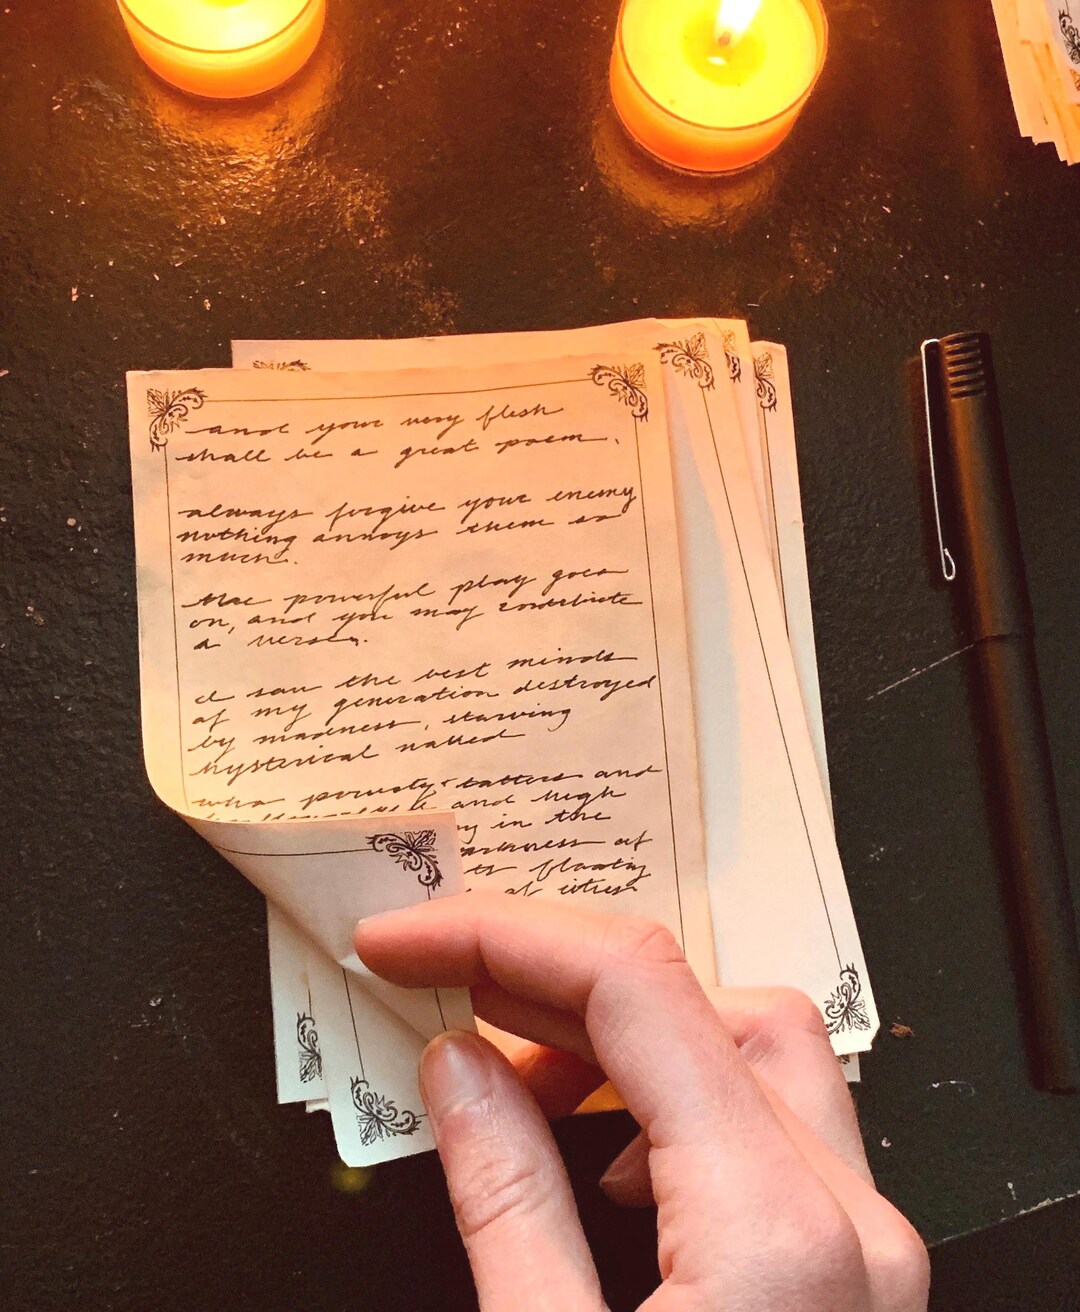 and your very flesh
shall be a great poem.
always forgive your enemy
nothing annoys them so
much.
the powerful play goes
on, and you may contribute
a verse.
I saw the best minds
of my generation destroyed
by madness, starving
hysterical naked
who poverty & tatters and
and high
in the
of
floating
of cities